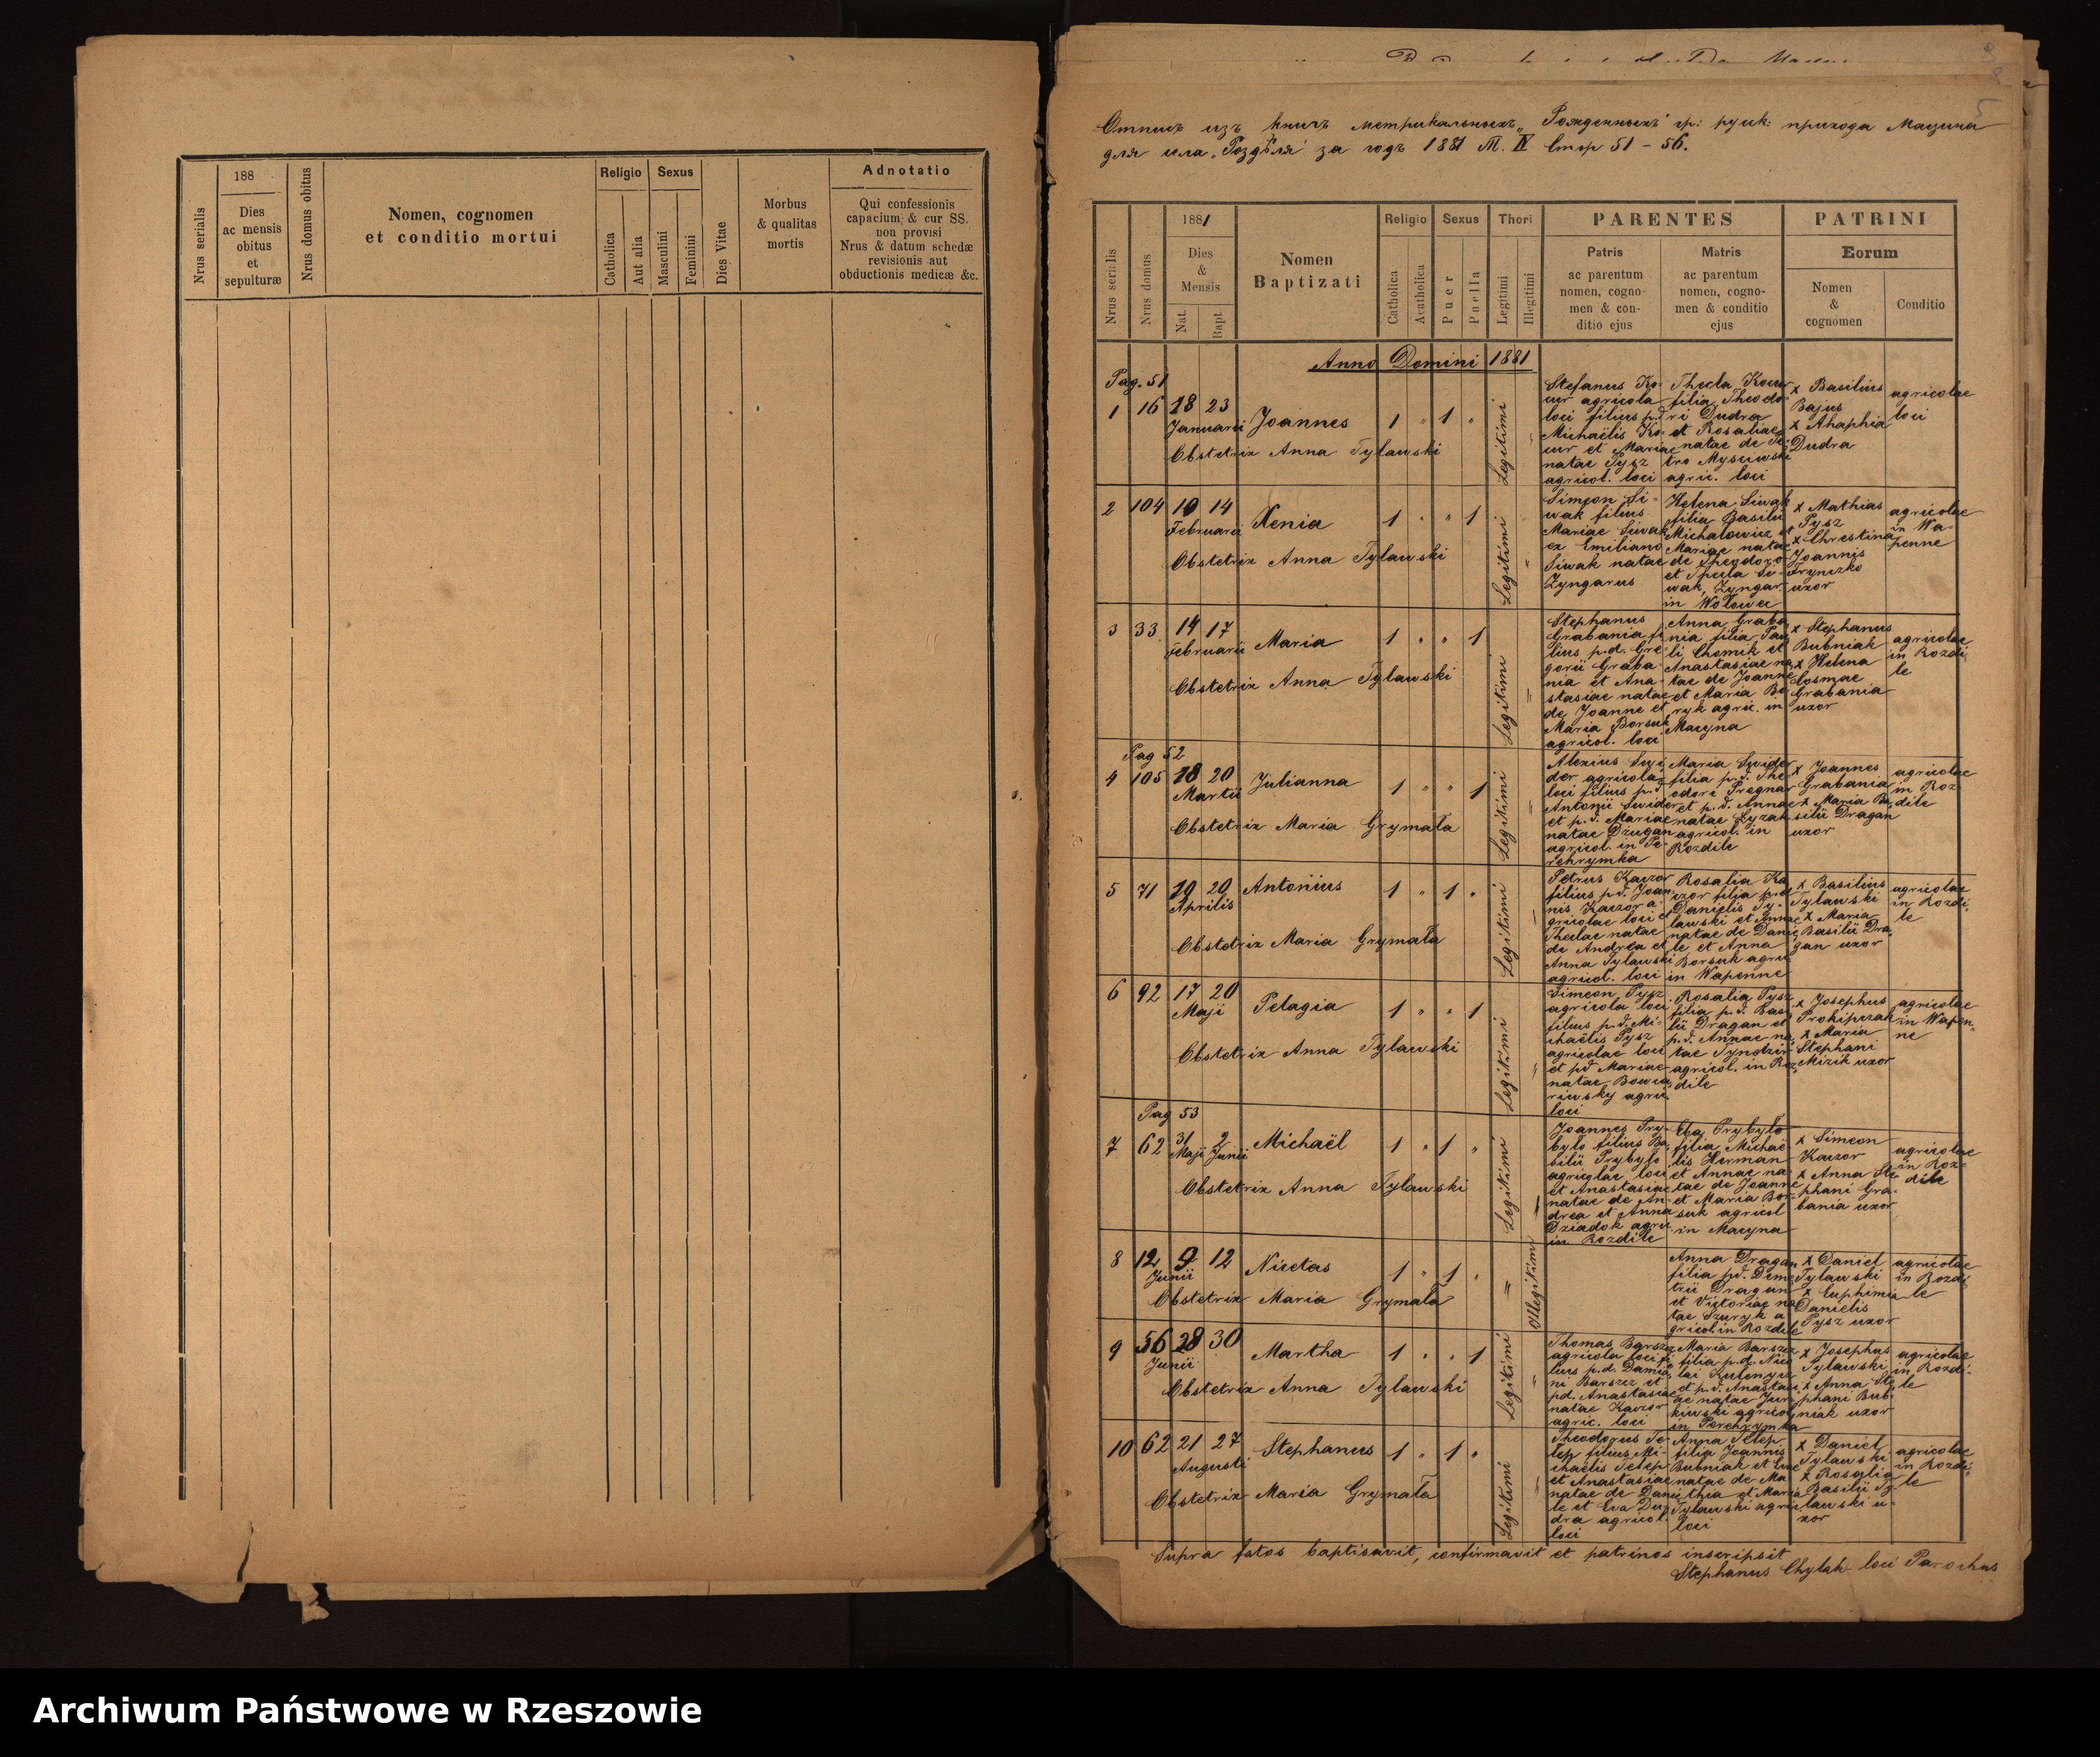 188
Nrus serialis
Dies
ac mensis
obitus
et
sepulturæ
Nrus domus obitus
Nomen, cognomen
et conditio mortui
Religio
Catholica
Aut alia
Sexus
Masculini
Feminini
Dies Vitae
Morbus
& qualitas
mortis
Adnotatio
Qui confessionis
capacium & cur SS.
non provisi
Nrus & datum schedæ
revisionis aut
obductionis medicæ &c.
Отпись изъ книгъ метрикальныхъ „Рожденныхъ" гр: руск: прихода Мацина
для села „Роздѣля" за годъ 1881 М. IV Стор 51 - 56.
Nrus serialis
Nrus domus
1881
Dies
&
Mensis
Nat.
Bapt.
Nomen
Baptizati
Religio
Catholica
Acatholica
Sexus
Puer
Puella
Thori
Legitimi
Illegitimi
PARENTES
Patris
ac parentum
nomen, cogno-
men & con-
ditio ejus
Matris
ac parentum
nomen, cogno-
men & conditio
ejus
PATRINI
Eorum
Nomen
&
cognomen
Conditio
Anno Domini 1881
Pag. 51
1 16 18 23 Joannes 1 " 1 "
Januarii
Obstetrix Anna Tylawski
Legitimi
Stefanus Ko-
cur agricola
loci filius p.d
Michaëlis Ko-
cur et Mariae
natae Pysz
agricol. loci
Thecla Kocur
filia Theodo-
ri Dudra
et Rosaliae
natae de Pe-
tro Mysciwski
agric. loci
x Basilius
Bajus
x Ahaphia
Dudra
agricolae
loci
2 104 10 14 Xenia 1 " " 1
Februarii
Obstetrix Anna Tylawski
Legitimi
Simeon Si-
wak filius
Mariae Siwak
ex Emiliano
Siwak natae
Zyngarus
Helena Siwak
filia Basilii
Michalowicz et
Mariae natae
de Theodoro
et Thecla Si-
wak, Zyngar
in Wołowec
x Mathias
Pysz
x Chrestina
Joannis
Hrynczko
uxor
agricolae
in Wa-
penne
3 33 14 17 Maria 1 " " 1
Februarii
Obstetrix Anna Tylawski
Legitimi
Stephanus
Grabania fi-
lius p.d. Gre-
gorii Graba-
nia et Ana-
stasiae natae
de Joanne et
Maria Borsuk
agricol. loci
Anna Graba-
nia filia Pau-
li Chomik et
Anastasiae na-
tae de Joanne
et Maria Bo-
ryk agric. in
Macyna
x Stephanus
Bubniak
x Helena
Cosmae
Grabania
uxor
agricolae
in Rozdi-
le
Pag 52
4 105 18 20 Julianna 1 " " 1
Martii
Obstetrix Maria Grymała
Legitimi
Alexius Swi-
der agricola
loci filius p.d
Antonii Swider
et p.d. Mariae
natae Dzugan
agricol. in Pe-
rehrymka
Maria Swider
filia p.d. The-
odori Pregnar
et p.d. Annae
natae Zyzak
agricol. in
Rozdile
x Joannes
Grabania
x Maria Ba-
silii Dragan
uxor
agricolae
in Roz-
dile
5 71 19 20 Antonius 1 " 1 "
Aprilis
Obstetrix Maria Grymała
Legitimi
Petrus Kaczor
filius p.d. Joan-
nis Kaczor a-
gricolae loci et
Theclae natae
de Andrea et
Anna Tylawski
agricol. loci
Rosalia Ka-
czor filia p.d.
Danielis Ty-
lawski et Annae
natae de Danie-
le et Anna
Borsuk agric
in Wapenne
x Basilius
Tylawski
x Maria
Basilii Dra-
gan uxor
agricolae
in Rozdi-
le
6 92 17 20 Pelagia 1 " " 1
Maji
Obstetrix Anna Tylawski
Legitimi
Simeon Pysz
agricola loci
filius p.d. Mi-
chaëlis Pysz
agricolae loci
et pd Mariae
natae
agric.
loci
Rosalia Pysz
filia p.d. Basi-
lii Dragan et
p.d. Annae na-
tae
agricol. in Roz-
dile
x Josephus
Prokipczak
x Maria
Stephani
Mizik uxor
agricolae
in Wapen-
ne
Pag 53
7 62 31 2 Michaël 1 " 1 "
Maji Junii
Obstetrix Anna Tylawski
Legitimi
Joannes Pry-
bylo filius Ba-
silii Prybylo
agricolae loci
et Anastasiae
natae de An-
drea et Anna
Dziadok agric.
in Rozdile
Eva Prybylo
filia Michaë-
lis Herman
et Annae na-
tae de Joanne
et Maria Bor-
suk agricol
in Macyna
x Simeon
Kaczor
x Anna Ste-
phani Gra-
bania uxor
agricolae
in Roz-
dile
8 12 9 12 Nicetas 1 " 1 "
Junii
Obstetrix Maria Grymała
Illegitimi
Anna Dragan
filia pd. Deme-
trii Dragan
et Victoriae na-
tae Szuryk a
gricol. in Rozdile
x Daniel
Tylawski
x Euphimia
Danielis
Pysz uxor
agricolae
in Rozdi-
le
9 56 28 30 Martha 1 " " 1
Junii
Obstetrix Anna Tylawski
Legitimi
Thomas Barszcz
agricola loci fi-
lius p.d. Damia-
ni Barszcz et
pd. Anastasiae
natae Kaczor
agric. loci
Maria Barszcz
filia p.d. Nico-
lai Kulenycz
et p.d. Anastasi-
ae natae Jur-
kiwski agricol
in Perehrymka
x Josephus
Tylawski
x Anna Ste-
phani Bub-
niak uxor
agricolae
in Rozdi-
le
10 62 21 27 Stephanus 1 " 1 "
Augusti
Obstetrix Maria Grymała
Legitimi
Theodorus Te-
lep filius Mi-
chaëlis Telep
et Anastasiae
natae de Danie-
le et Eva Du-
dra agricol.
loci
Anna Telep
filia Joannis
Bubniak et
natae de Ma-
thia et Maria
Tylawski agric
loci
x Daniel
Tylawski
x Rosalia
Basilii Ty-
lawski u-
xor
agricolae
in Rozdi-
le
Supra fatos baptisavit, confirmavit et patrinos inscripsit
Stephanus Chylak loci Parochus
Archiwum Państwowe w Rzeszowie